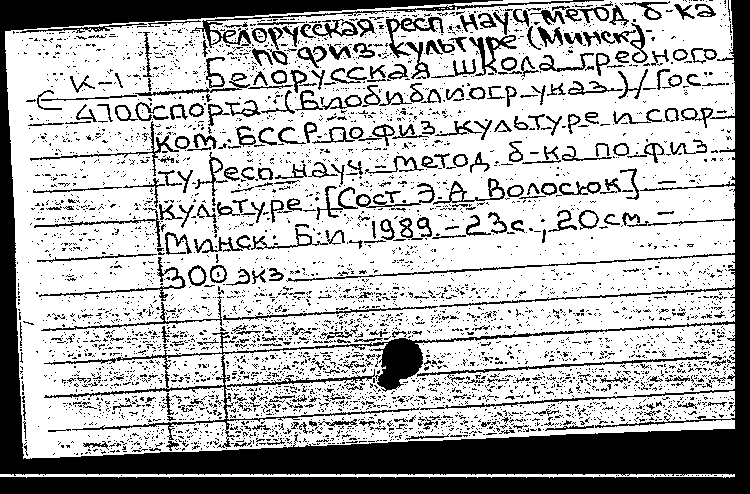 Белорусская респ. науч.-метод. б-ка
по физ. культуре (Минск).
К-1 Белорусская школа гребного
4700 спорта: (Биобиблиогр. указ.) / Гос.
ком. БССР по физ. культуре и спор-
ту, Респ. науч.-метод. б-ка по физ.
культуре; [Сост. Э.А. Волосюк]. –
Минск: Б.и., 1989. – 23с.; 20см. –
300 экз.